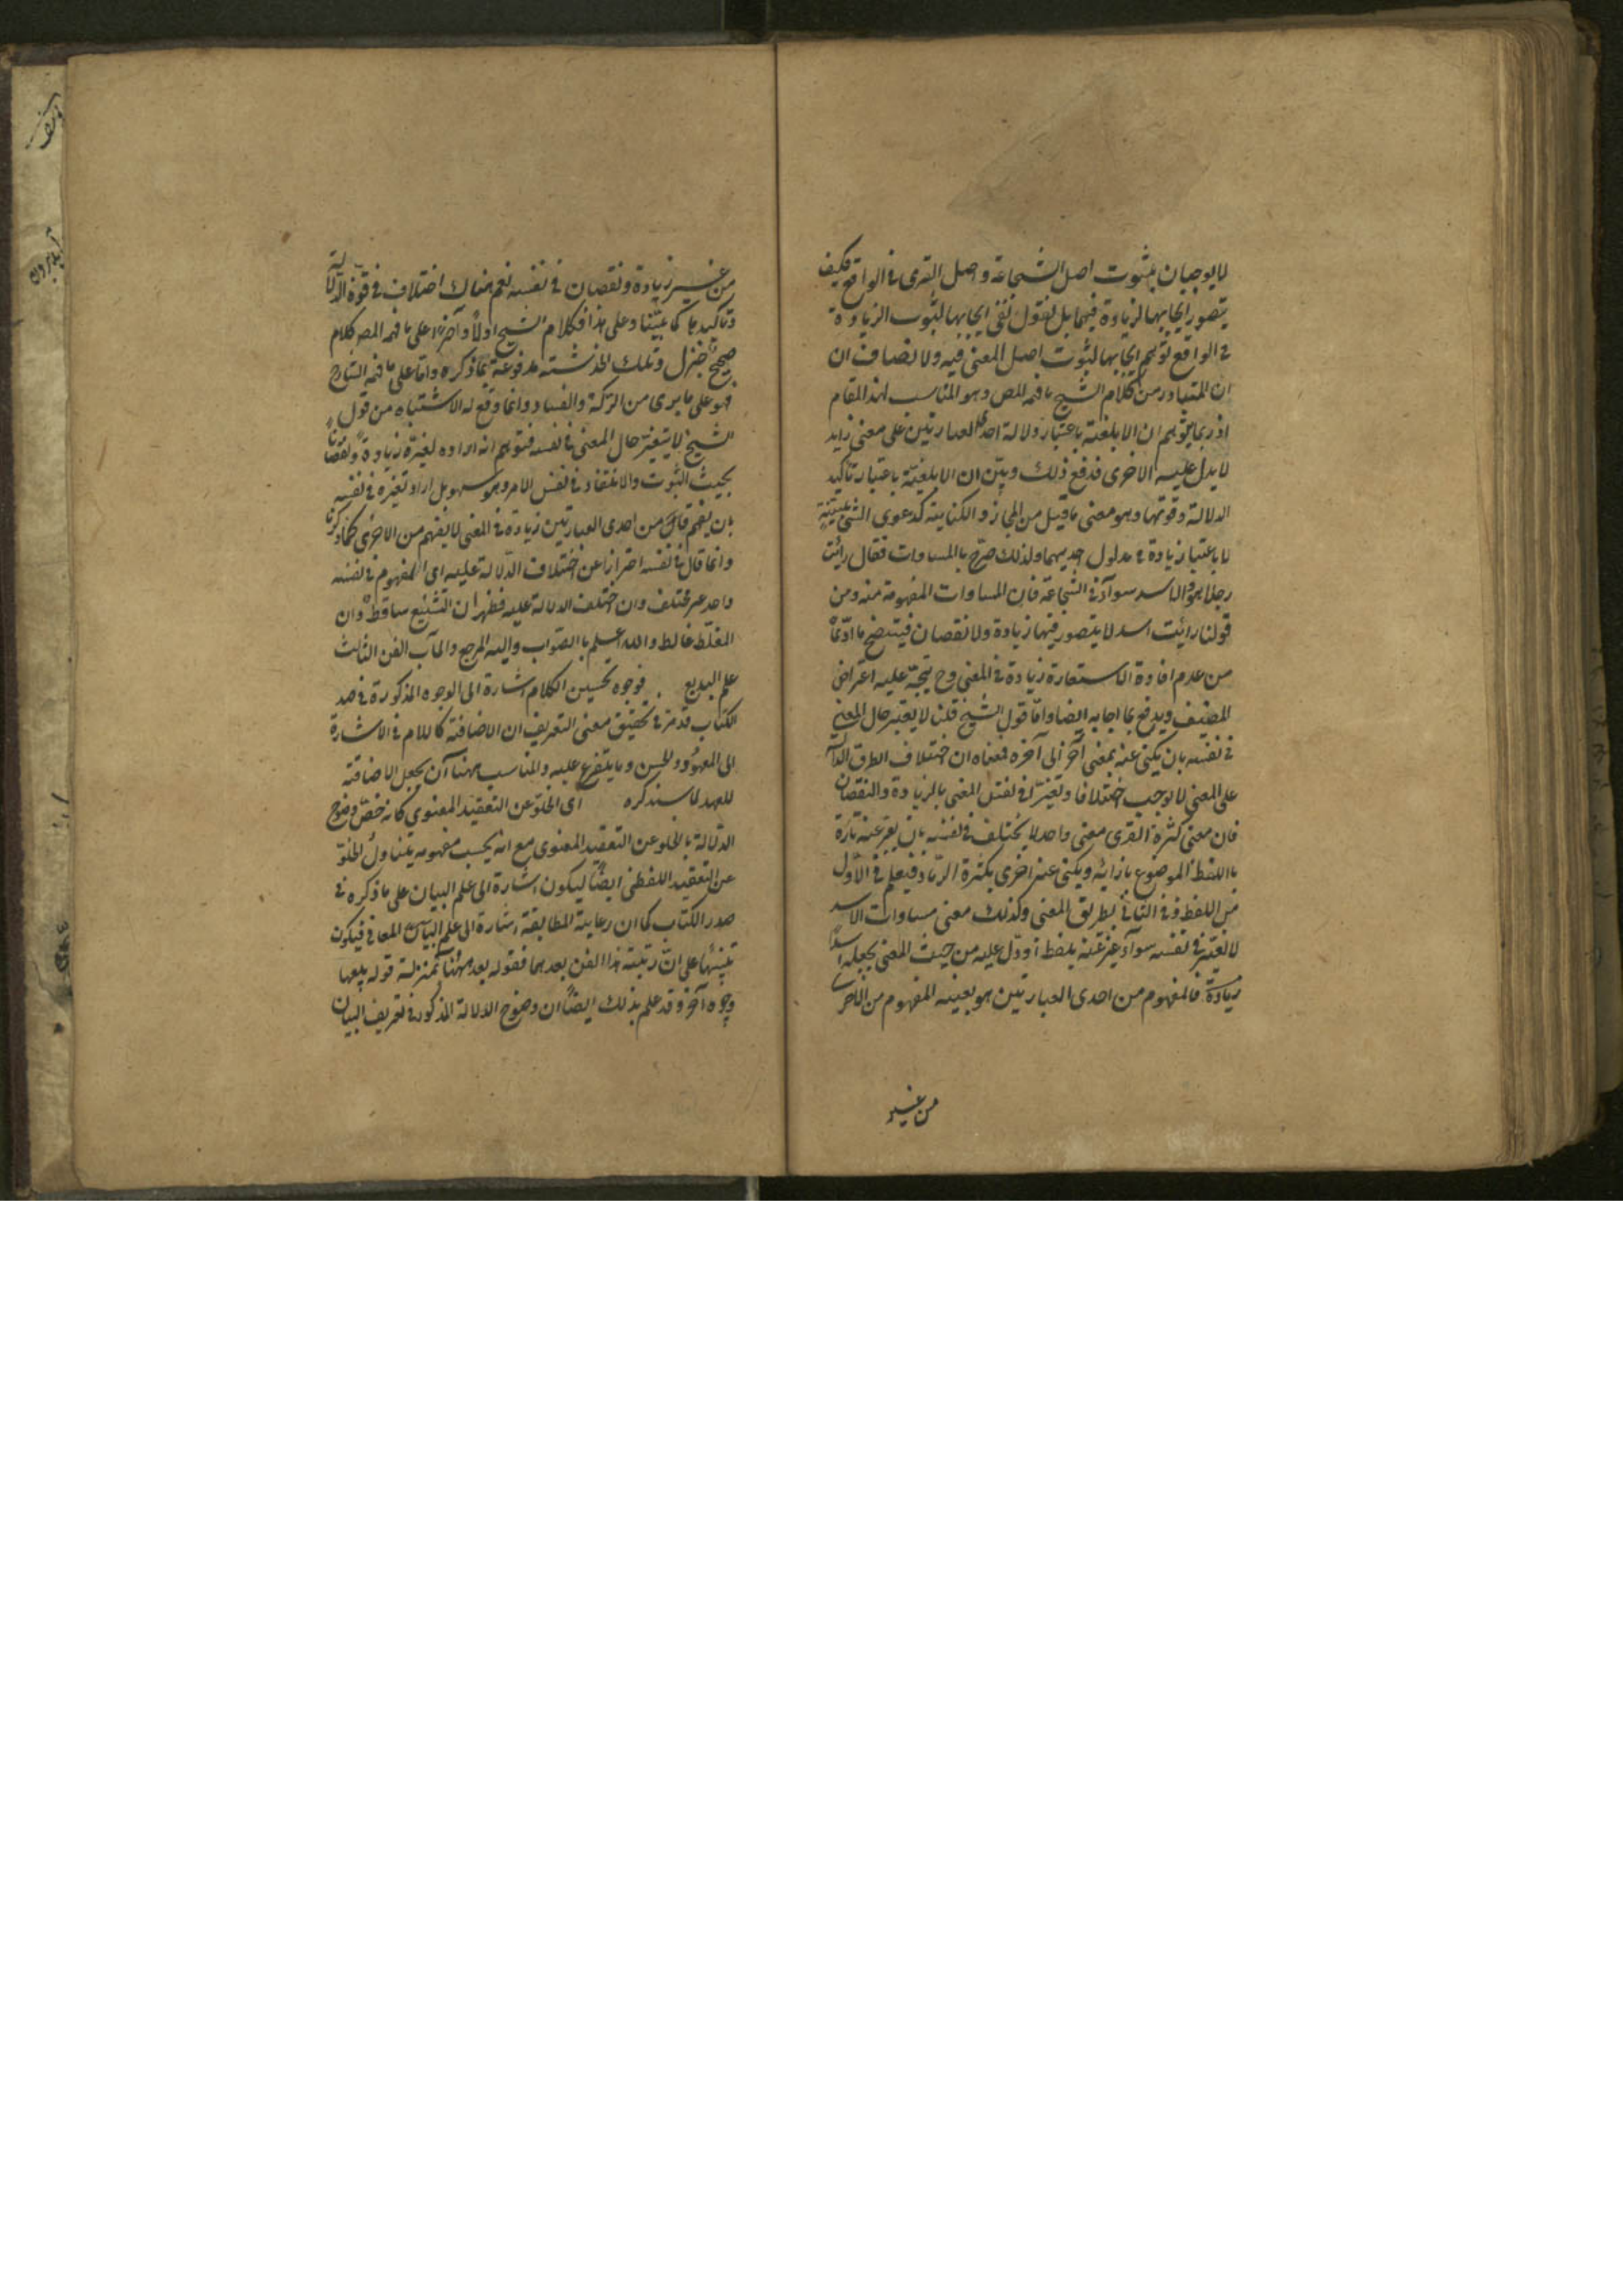 لا يوجبان ثبوت اصل الشجاعة واصل القرى فى الواقع فكيف
يتصور ايجابهما لزيادة فيهما بل نقول نفى ايجابهما لثبوت الزيادة
فى الواقع توهم ايجابهما لثبوت اصل المعنى فيه ولا نصاف ان
ان المتبادر من كلام الشيخ ما فهمه المص وهو المناسب لهذا المقام
اذ ربما يتوهم ان الابلغية باعتبار دلالة احدى العبارتين على معنى زايد
لا يدل عليه الاخرى فدفع ذلك وبيّن ان الابلغية باعتبار تأكيد
الدلالة وقوتها وهو معنى ما قيل من المجاز والكناية كدعوى الشئ ببيّنة
لا باعتبار زيادة فى مدلول احديهما ولذلك صرّح بالمساوات فقال رأيت
رجلا هو والاسد سوآء فى الشجاعة فان المساوات المفهومة منه ومن
قولنا رأيت اسد لا يتصور فيها زيادة ولا نقصان فيتضح ما ادّعاه
من عدم افادة الاستعارة زيادة فى المعنى وح يتجه عليه اعتراض
المصنف ويدفع بما اجابه ايضا واما قول الشيخ قلنا لا يتغير حال المعنى
فى نفسه بان يكنى عنه بمعنى آخر الى آخره فمعناه ان اختلاف الطرق الدالة
على المعنى لا يوجب اختلافا وتغيّرا فى نفس المعنى بالزيادة والنقصان
فان معنى كثرة القرى معنى واحد لا يختلف فى نفسه بان يعبر عنه تارة
با اللفظ الموضوع بازائه ويكنى عنه اخرى بكثرة الرماد فيعلم فى الاول
من اللفظ وفى الثانى بطريق المعنى وكذلك معنى مساوات الاسد
لا تغيّر فى نفسه سوآء عبر عنه بلفظ او دل عليه من حيث المعنى بجعله اسدا
زيادة فالمفهوم من احدى العبارتين هو بعينه المفهوم من الاخرى
من غير
من غير زيادة ونقصان فى نفسه نعم هناك اختلاف فى قوة الدلالة
وتأكيدها كما بيّنا وعلى هذا فكلام الشيخ اولا وآخرا على ما فهمه المص كلام
صحيح جزل وتلك الخدشة مدفوعة بما ذكره واما على ما فهمه الشارح
فهو على ما يرى من الركة والفساد وانما وقع له الاشتباه من قول
الشيخ لا يتغير حال المعنى فى نفسه فتوهم انه اراده تغيره زيادة ونقصانا
بحيث الثبوت والانتفاء فى نفس الامر وهو سهو بل اراد تغيره فى نفسه
بان يفهم من احدى العبارتين زيادة فى المعنى لا يفهم من الاخرى كما ذكرنا
وانما قال فى نفسه احترازا عن اختلاف الدلالة عليه اى المفهوم فى نفسه
واحد غير مختلف وان اختلف الدلالة عليه فظهر ان التشنيع ساقط وان
المغلّط غالط والله اعلم با الصواب واليه المرجع والمآب الفن الثالث
علم البديع . فوجوه تحسين الكلام اشارة الى الوجوه المذكورة فى صد
الكتاب قد مر فى تحقيق معنى التعريف ان الاضافة كاللام فى الاشارة
الى المعهود والجنس وما يتفرع عليه والمناسب ههنا آن يجعل الاضافة
للعهد لما سنذكره اى الخلوّ عن التعقيد المعنوى كانه خصّ وضوح
الدلالة بالخلو عن التعقيد المعنوى مع انه بحسب مفهومه يتناول الخلوّ
عن التعقيد اللفظى ايضًا ليكون اشارة الى علم البيان على ما ذكره فى
صدر الكتاب كما ان رعاية المطابقة اشارة الى علم المعانى فيكون
تنبيهًا على انّ رتبة هذا الفن بعدهما فقوله بعد ههنا بمنزلة قوله يتبعها
وجوه آخر وقد علم بذلك ايضًا ان وضوح الدلالة المذكور فى تعريف البيان